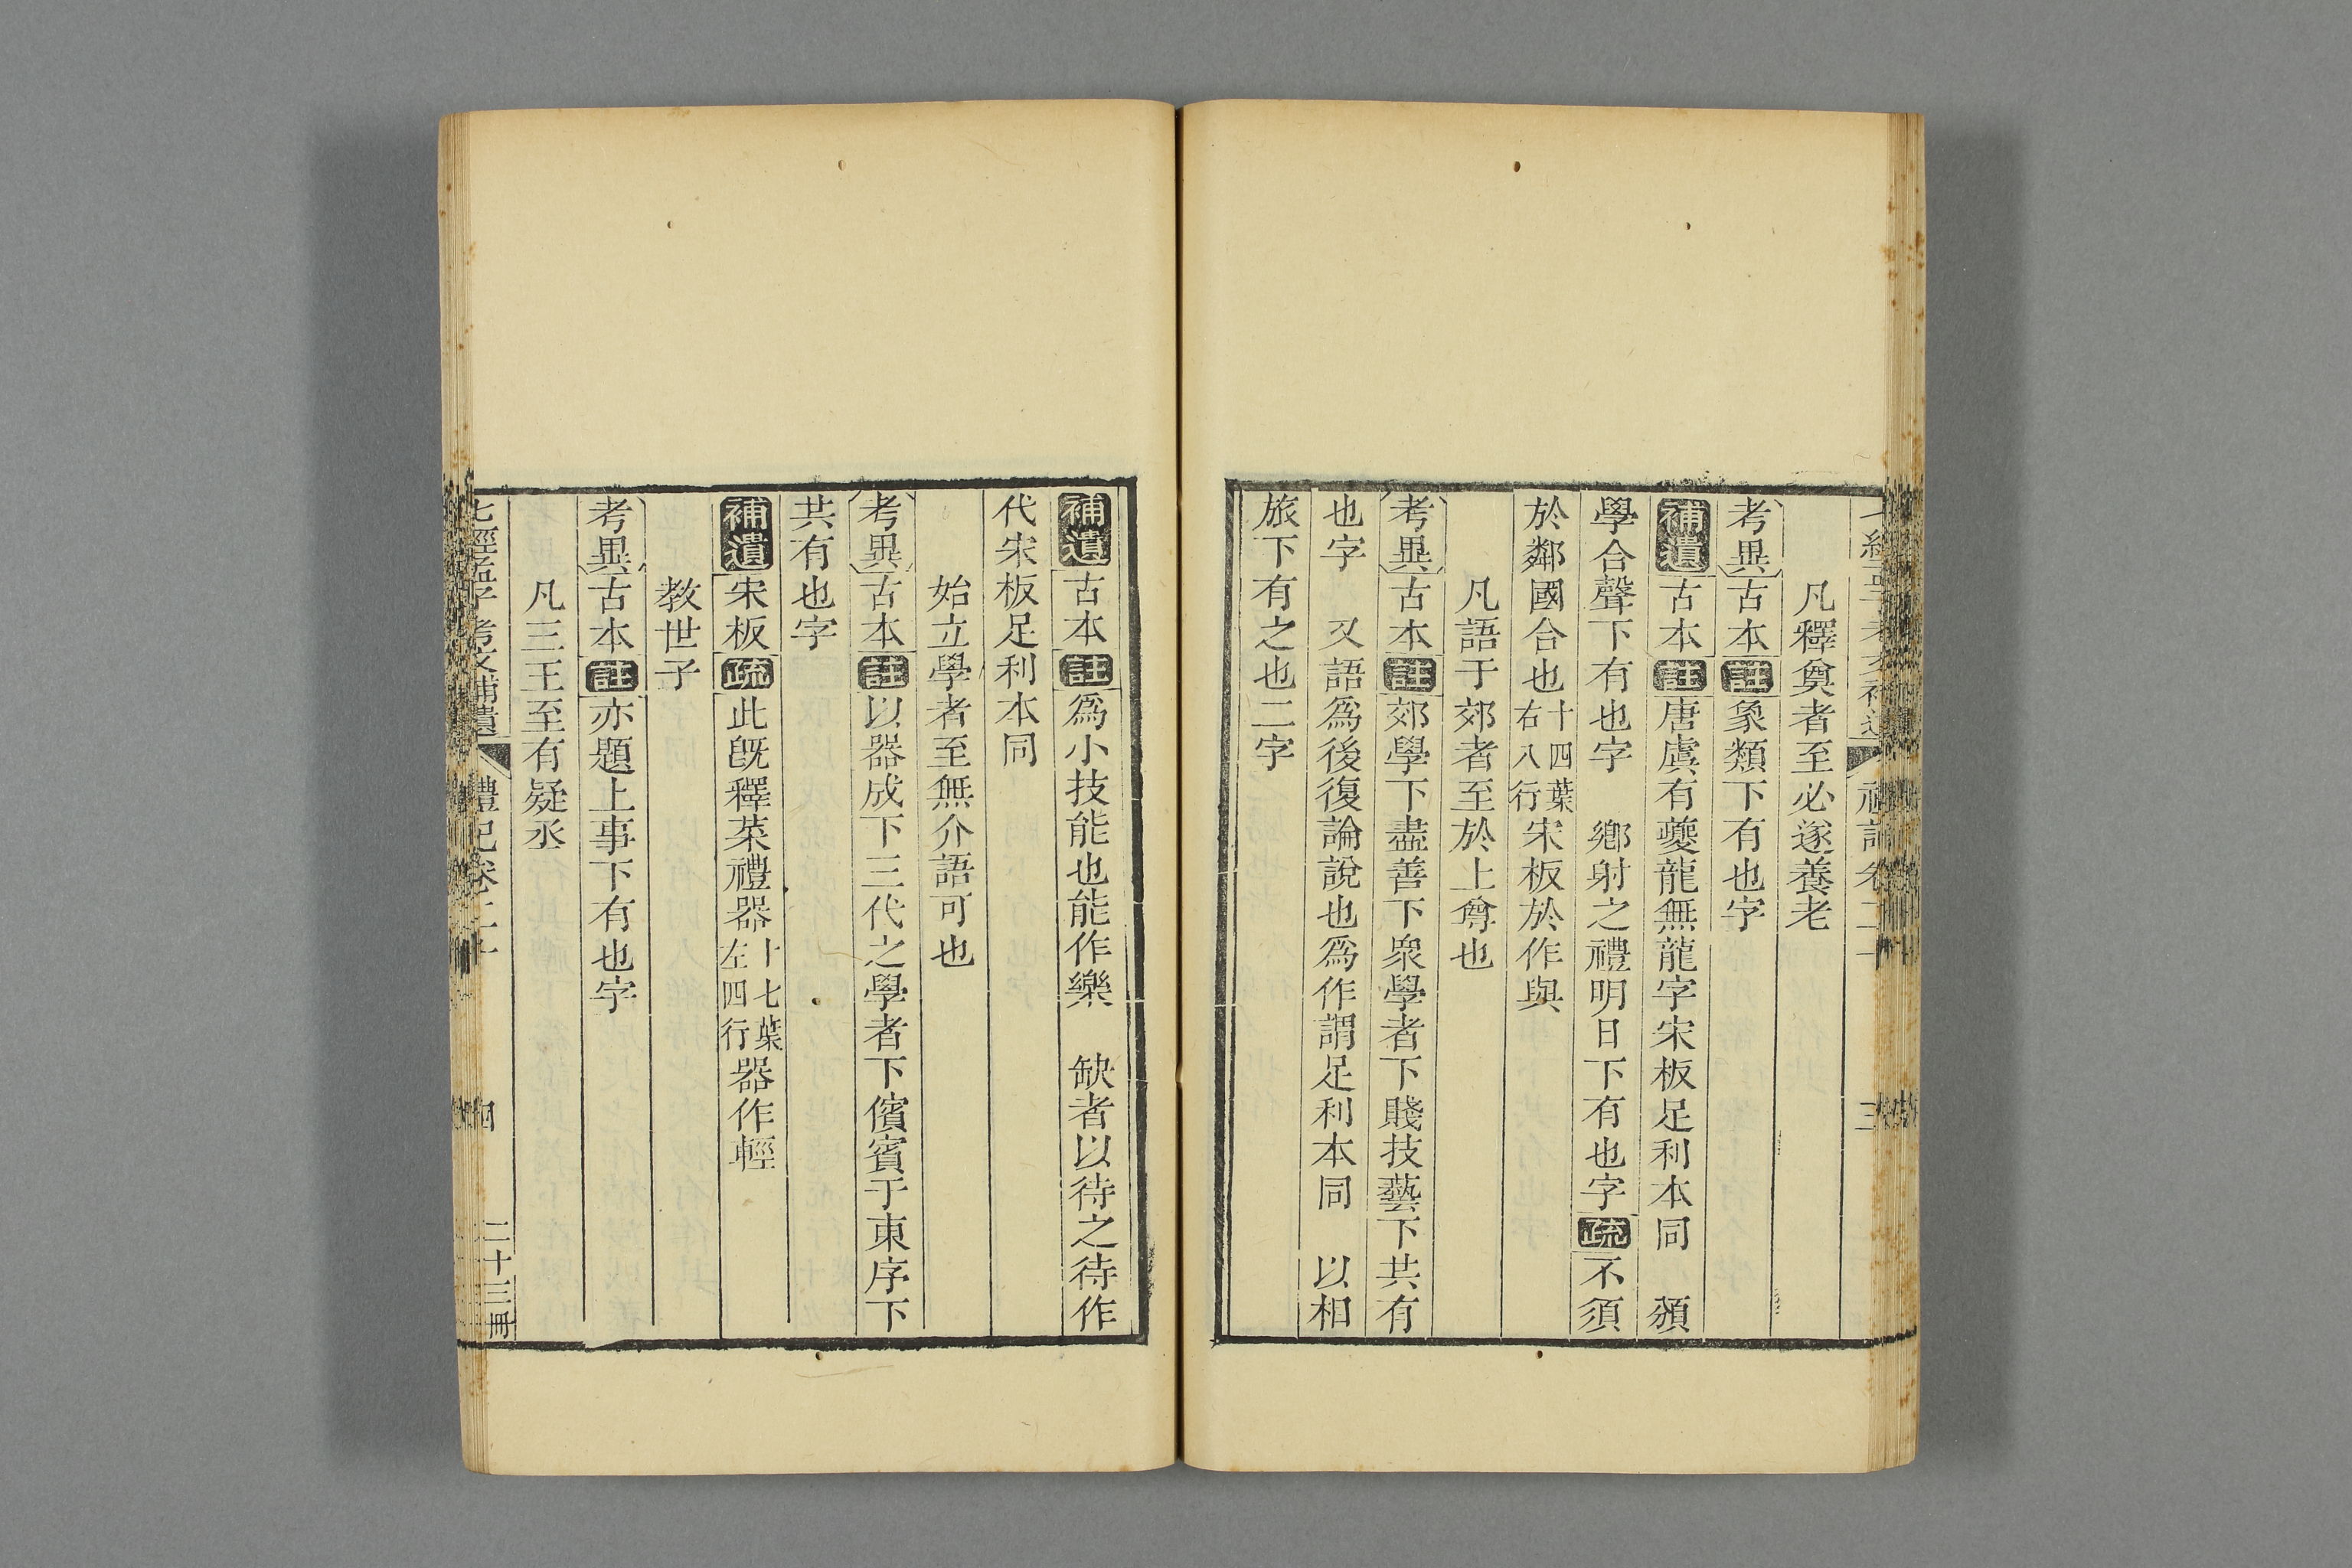 凡釋奠者至必遂養老
考異古本註象類下有也字
補遺古本註唐虞有夔龍無龍字宋板足利本同　頒
學合聲下有也字　鄉射之禮明日下有也字疏不須
於鄰國合也十四葉右八行宋板於作與
凡語于郊者至於上尊也
考異古本註郊學下盡善下衆學者下賤技藝下共有
也字　又語爲後復論說也爲作謂足利本同　以相
旅下有之也二字
補遺古本註爲小技能也能作樂　缺者以待之待作
代宋板足利本同
始立學者至無介語可也
考異古本註以器成下三代之學者下儐賓于東序下
共有也字
補遺宋板疏此旣釋菜禮器十七葉左四行器作輕
教世子
考異古本註亦題上事下有也字
凡三王至有疑丞
七經孟子考文補遺　禮記卷二十　四　二十三冊